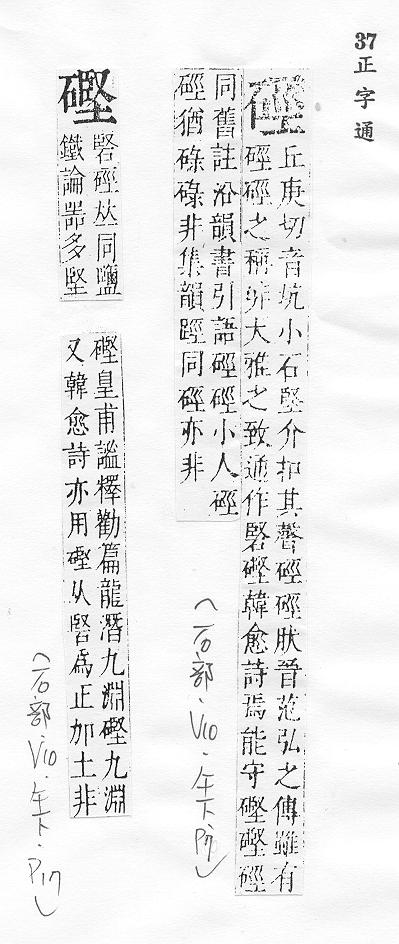 37
正字通
硜
丘庚切音坑小石堅介扣其聲硜硜肰晉范弘之傳雖有
硜硜之稱非大雅之致通作硻䃘韓愈詩焉能守䃘䃘硜
同舊註沿韻書引語硜硜小人硜
硜猶碌碌非集韻踁同硜亦非
(石部·V10·午下·P7)
䃘
硻硜𠀤同鹽
鐵論噐多堅
䃘皇甫謐釋勸篇龍潛九淵䃘九淵
又韓愈詩亦用䃘从硻為正加土非
(石部·V10·午下·P17)